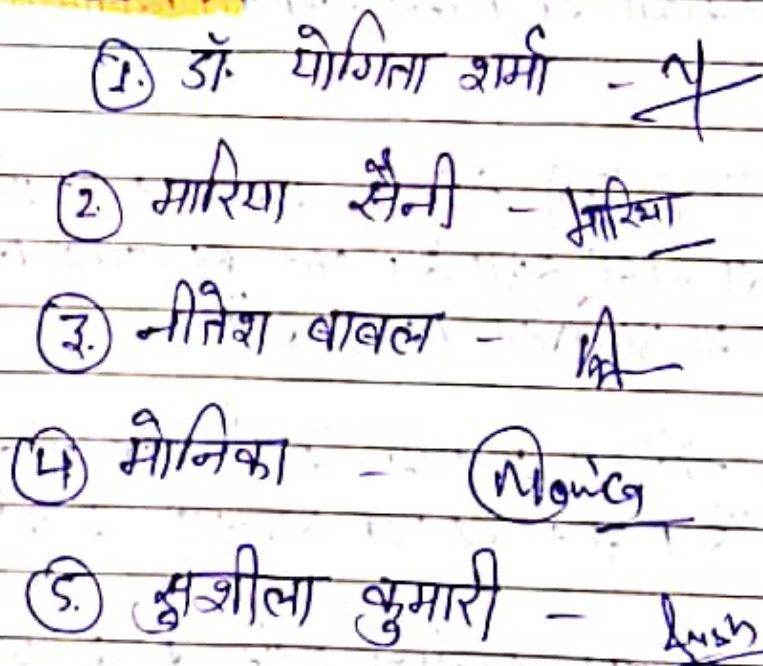 1. डॉ. योगिता शर्मा -
2. मारिया सैनी - मारिया
3. नीतेश बाबल -
4 मोनिका - Monica
5. सुशीला कुमारी -